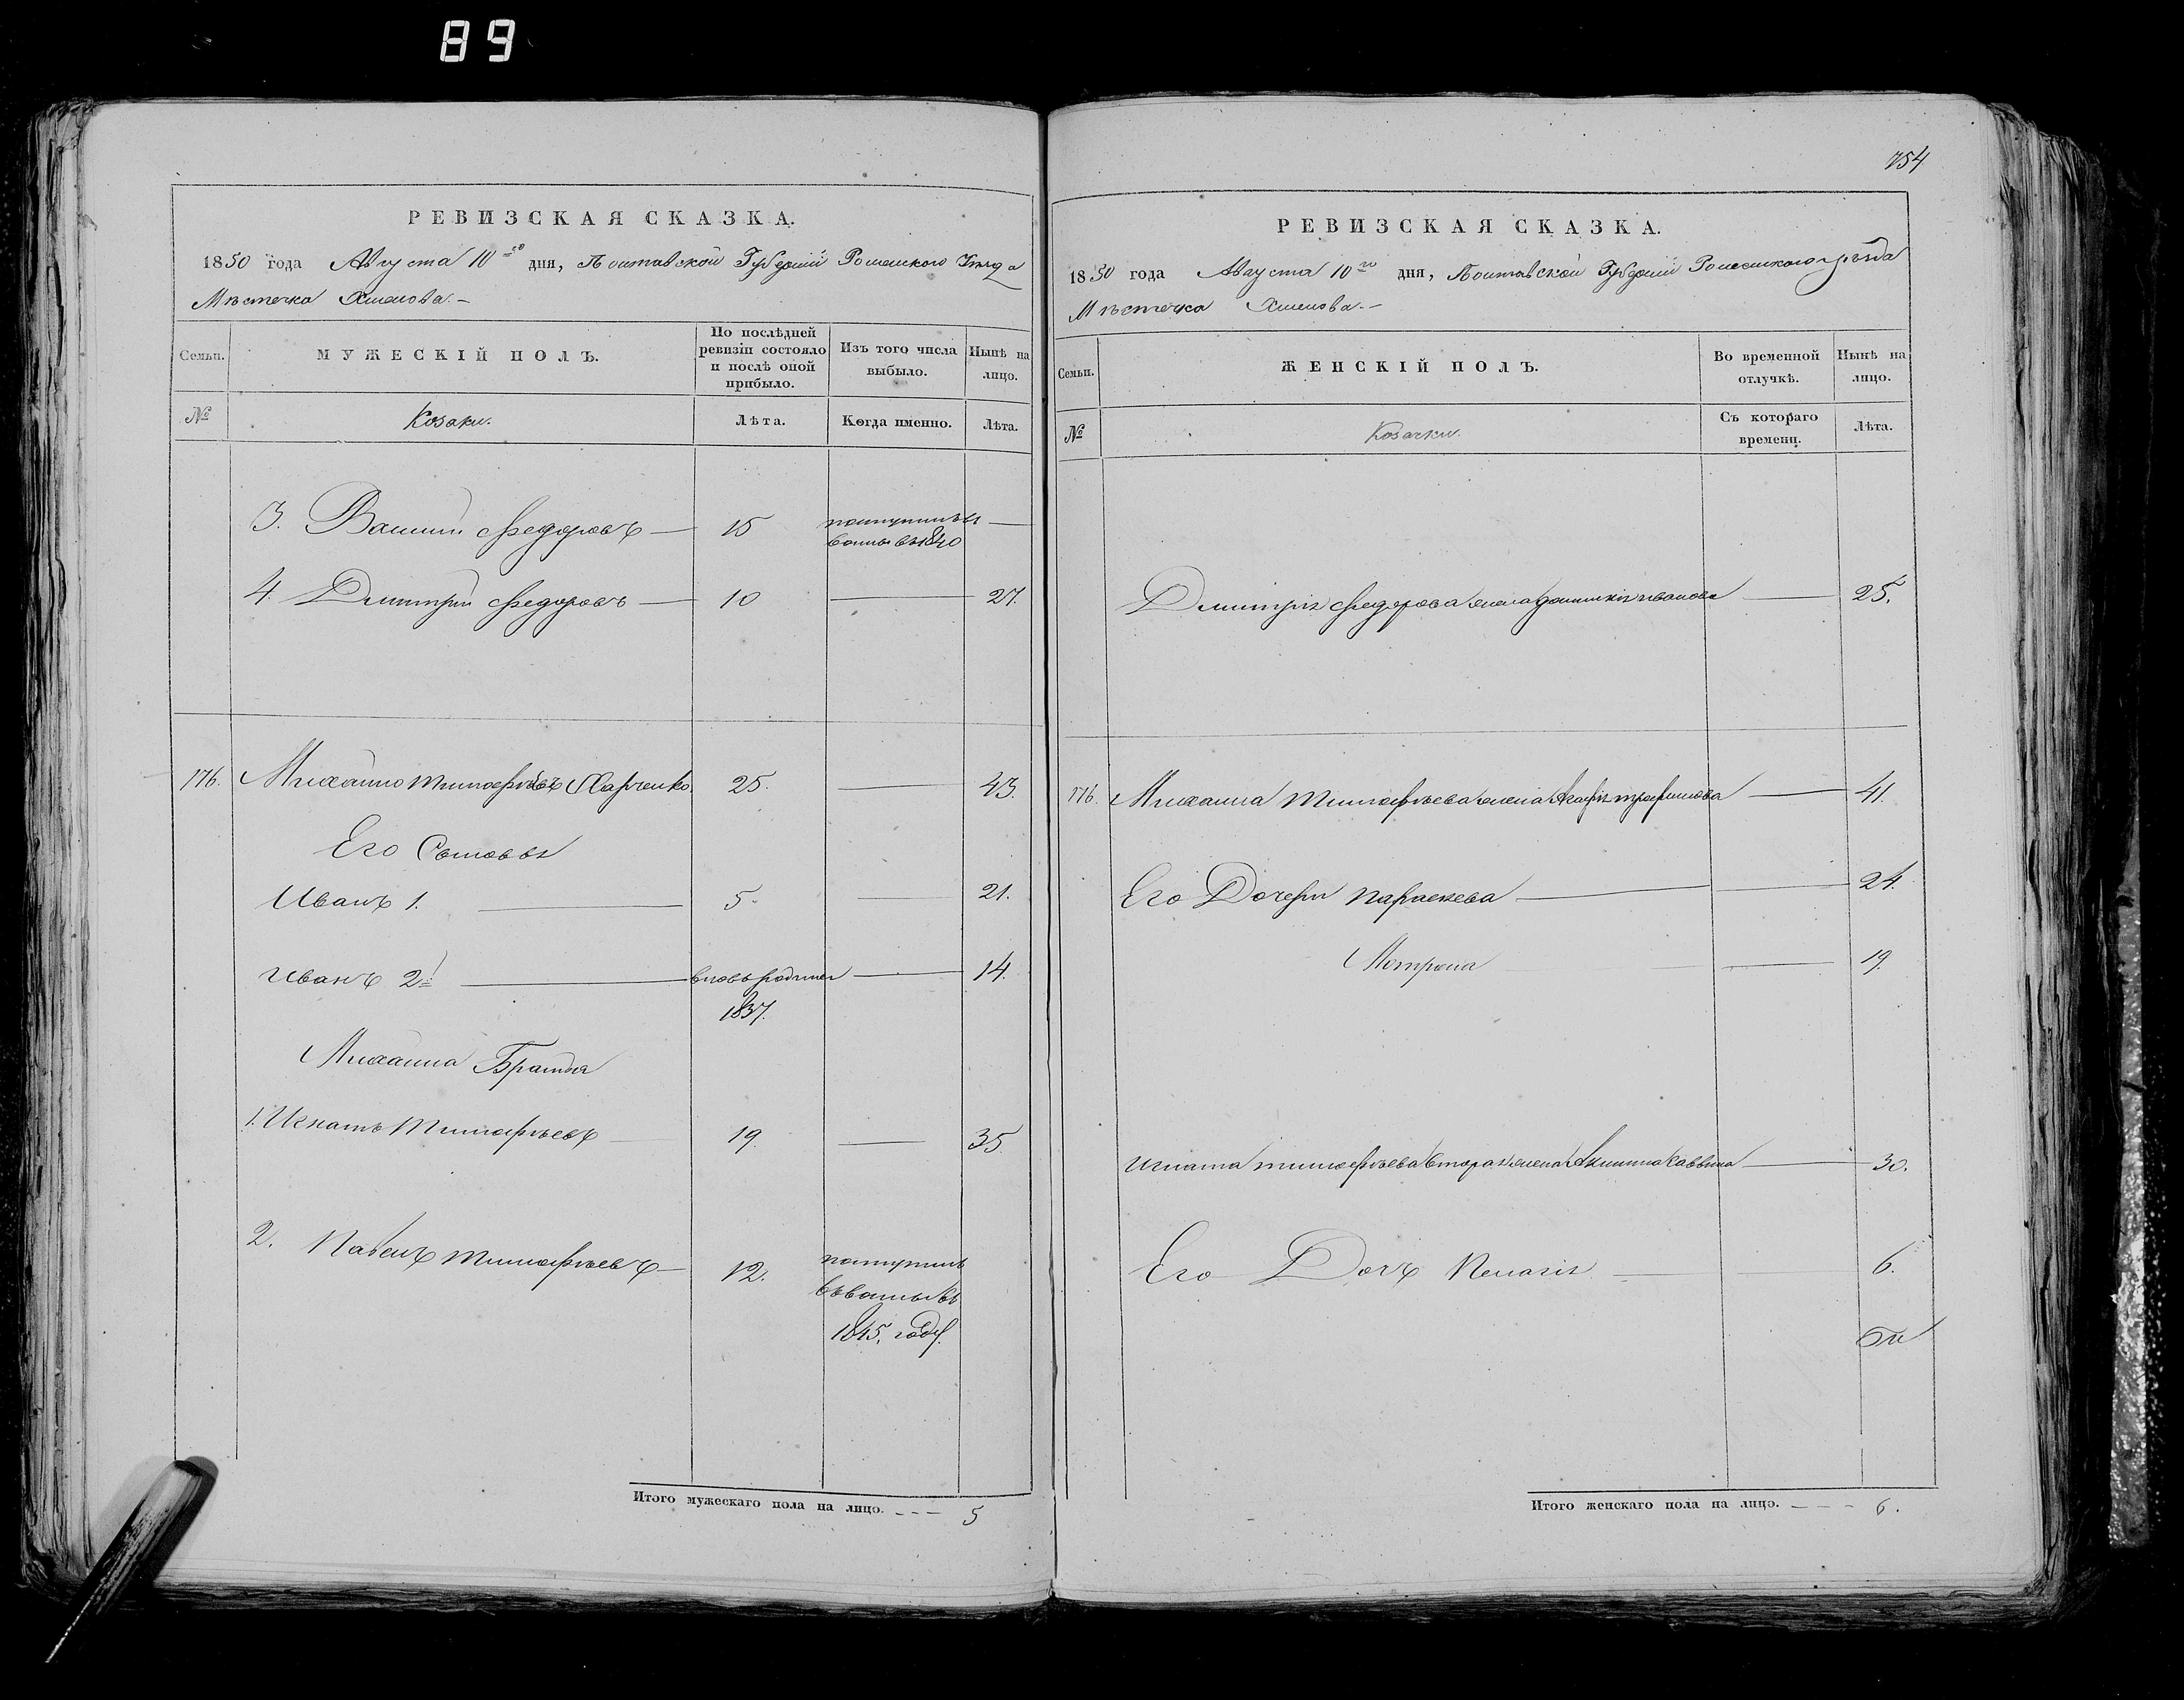 89
РЕВИЗСКАЯ СКАЗКА.
1850 года Августа 10го дня, Полтавской Губерніи Роменского Уезда
Мѣстечка Хмелова. –
Семьи. МУЖЕСКІЙ ПОЛЪ. По послѣдней ревизіи состояло и послѣ оной прибыло. Изъ того числа выбыло. Нынѣ на лицо.
№ Козаки. Лѣта. Когда именно. Лѣта.
3. Василий Федоровъ — 15 поступилъ —
1840
4. Дмитрий Федоровъ — 10 — 27.
176. Михайло Тимофѣевъ Харченко 25. — 43.
Его Сыновья
Иванъ 1. — 5. — 21.
Иванъ 2й — вновь родился — 14.
1837.
Михаила Братья
1. Игнатъ Тимофѣевъ — 19. — 35.
2. Павелъ Тимофѣевъ — 12. поступилъ
въ
1845. году.
Итого мужескаго пола на лицо. - - - 5
754
РЕВИЗСКАЯ СКАЗКА.
1850 года Августа 10го дня, Полтавской Губерніи Роменского уѣзда
Мѣстечка Хмелова. –
Семьи. ЖЕНСКІЙ ПОЛЪ. Во временной отлучкѣ. Нынѣ на лицо.
№ Козачки. Съ котораго времени. Лѣта.
Дмитрія Федорова жена Иванова — 25.
176. Михаила Тимофѣева жена Агафія Трофимова — 41.
Его Дочери Параскева — 24.
Мотрона — 19.
Игната Тимофѣева вторая жена Акилина Саввина — 30.
Его Дочь Пелагія — 6.
Итого женскаго пола на лицо. - - - 6.